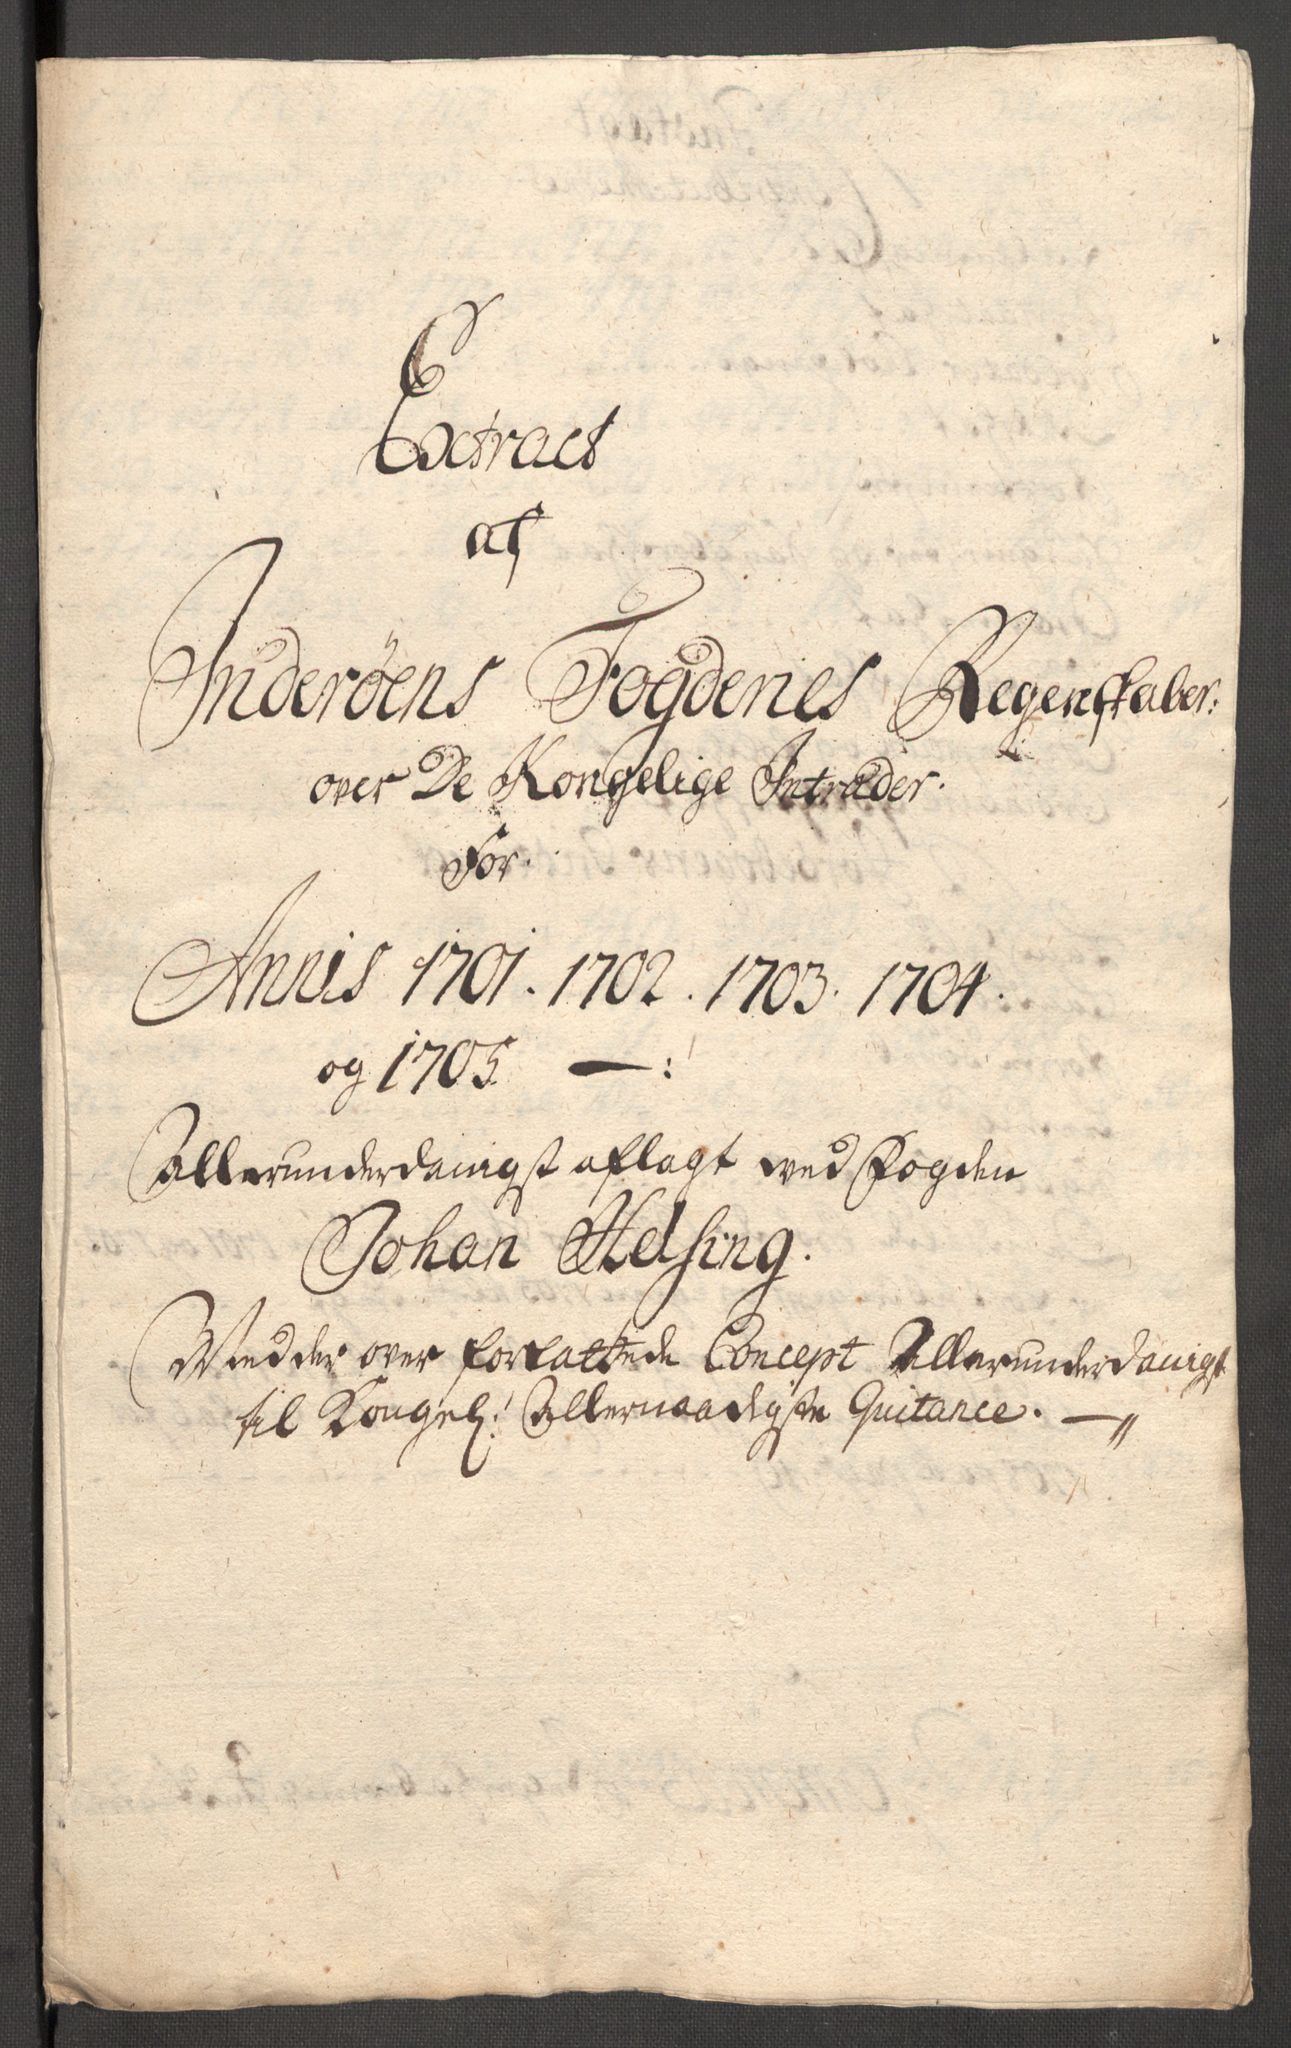 Extract
af
Inderøens Fogderies Regenskaber:
over De Kongelige Intrader.
For.
Annis 1701. 1702. 1703. 1704.
og 1705 —:
Allerunderdanigst aflagt wed Fogden
Johan Helsing.
Med der over forfattede Concept Allerunderdanigst
til Kongel: Allernaadigste Quitance. —"